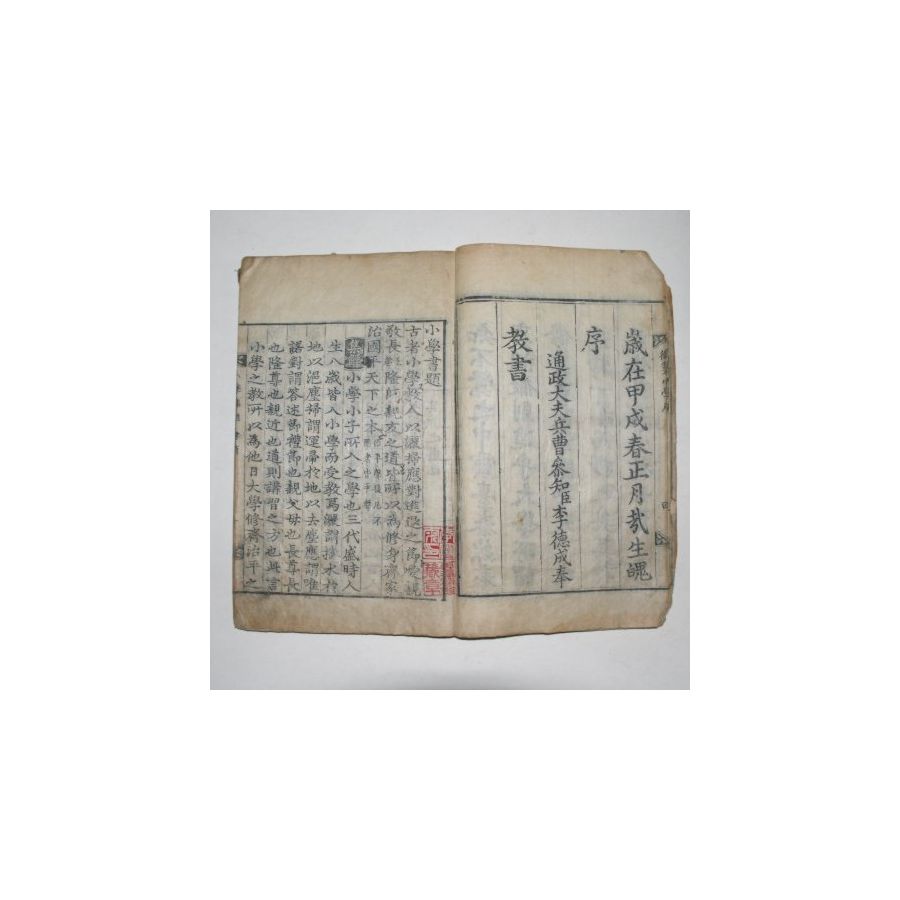 歲在甲戌春正月哉生魄
序
通政大夫兵曹參知臣李德成奉
教書
小學書題
古者小學教人以灑掃應對進退之節愛親
敬長隆師親友之道皆所以為修身齊家
治國平天下之本
小學小子所入之學也三代盛時人
生八歲皆入小學而受教焉灑謂播水於
地以浥塵掃謂運帚於地以去塵應謂唯
諾對謂答述節禮節也親父母也長尊長
也隆尊也親近也道則講習之方也無言
小學之教所以為他日大學修齊治平之